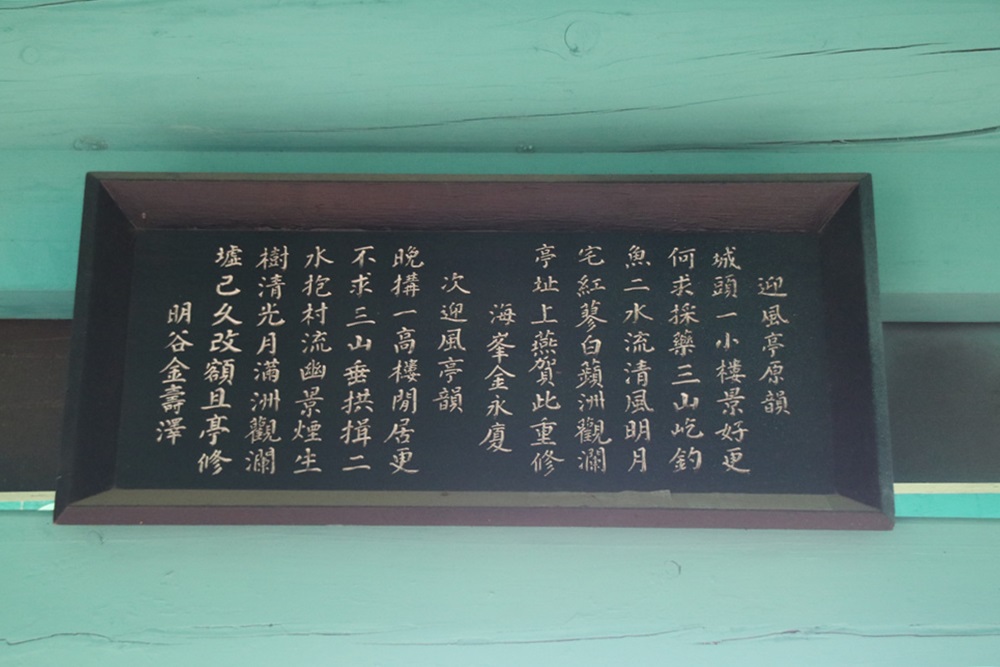 迎風亭原韻
城頭一小樓景好更
何求採藥三山屹釣
魚二水流清風明月
宅紅蓼白蘋洲觀瀾
亭址上燕賀此重修
海峯金永廈
次迎風亭韻
晚搆一高樓閒居更
不求三山垂拱揖二
水抱村流幽景煙生
樹清光月滿洲觀瀾
墟已久改額且亭修
明谷金壽澤